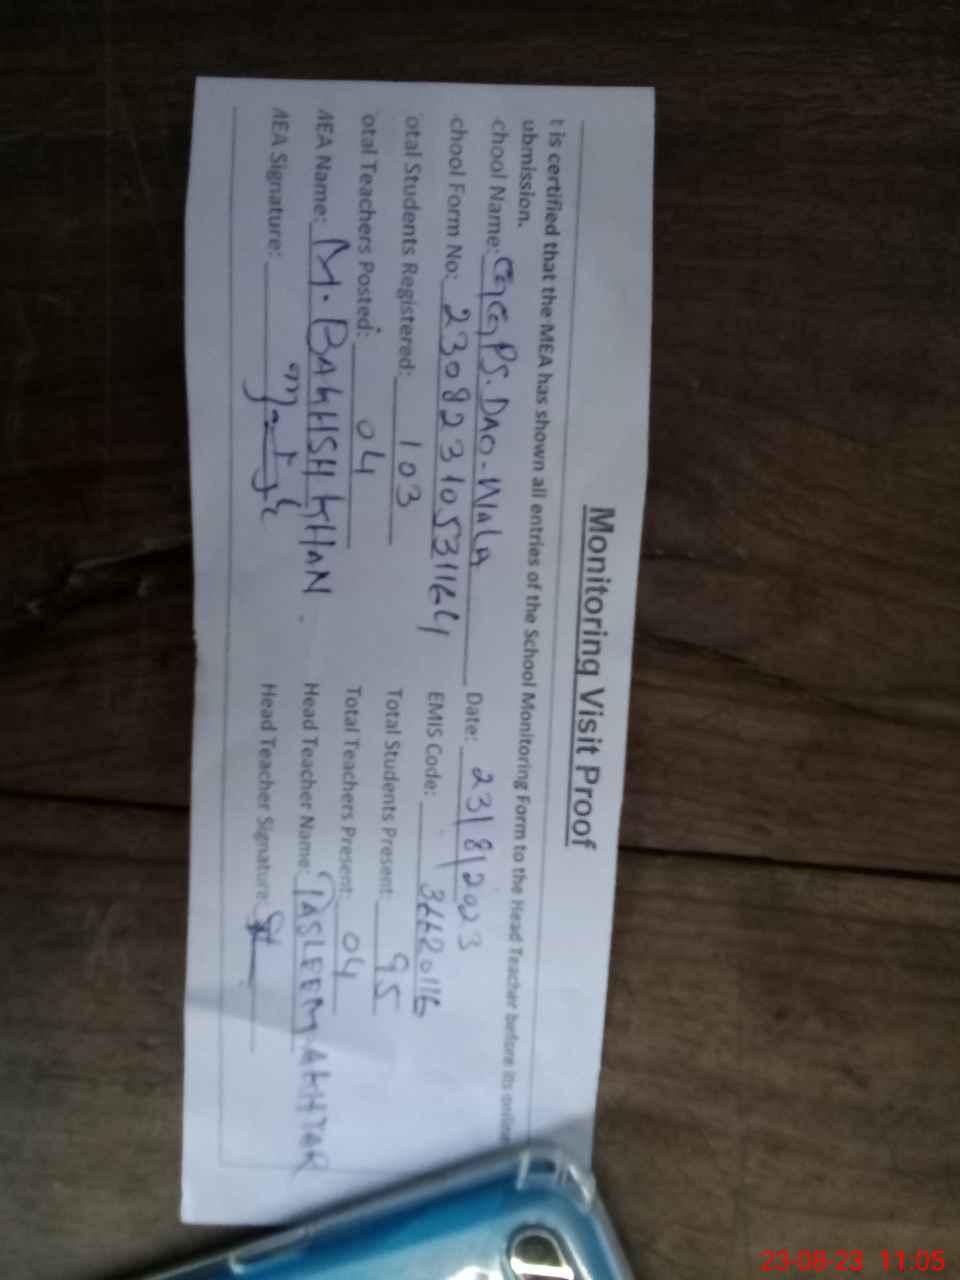 Monitoring Visit Proof
t is certified that the MEA has shown all entries of the School Monitoring Form to the Head Teacher before its online
ubmission.
chool Name: GGPS. DAO-WALA Date: 23/8/2023
chool Form No: 2308231053116 EMIS Code: 36620116
otal Students Registered: 103 Total Students Present: 95
otal Teachers Posted: 04 Total Teachers Present: 04
MEA Name: M. BAKHSH KHAN. Head Teacher Name: TASLEEM AKHTAR
MEA Signature: Head Teacher Signature:
23-08-23 11:05